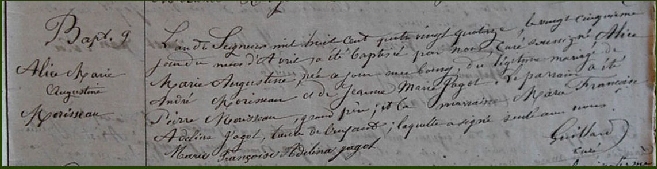 Bapt. 9
Alice Marie
Augustine
Morisseau
L'an du Seigneur mil huit cent quatre vingt quatorze, le vingt cinquième
jour du mois d'Avril a été baptisée par nous, Curé soussigné Alice
Marie Augustine, née ce jour au bourg, du légitime mariage de
André Morisseau et de Jeanne Marie Jagot. Le parrain a été
Pierre Morisseau grand père, et la marraine Marie Françoise
Adelina Jagot, tante de l'enfant; laquelle a signé seule avec nous.
Marie Françoise Adelina jagot
curé